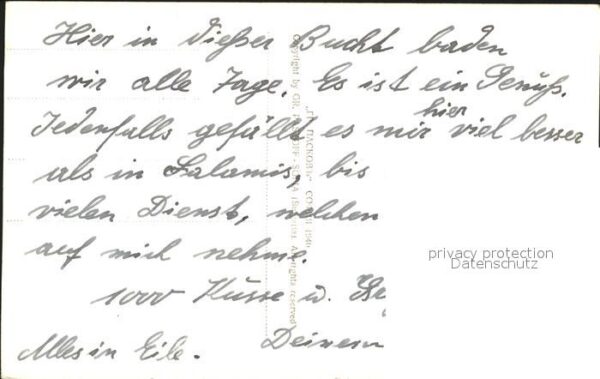 Hier in dießer Bucht baden
wir alle Tage. Es ist ein Genuß.
Jedenfalls gefällt es mir hier viel besser
als in Salamis, bis
vielen Dienst, welchen
auf mich nehme.
1000 Küsse u.
Alles in Eile. Deinem
privacy protection
Datenschutz
Copyright by
All rights reserved